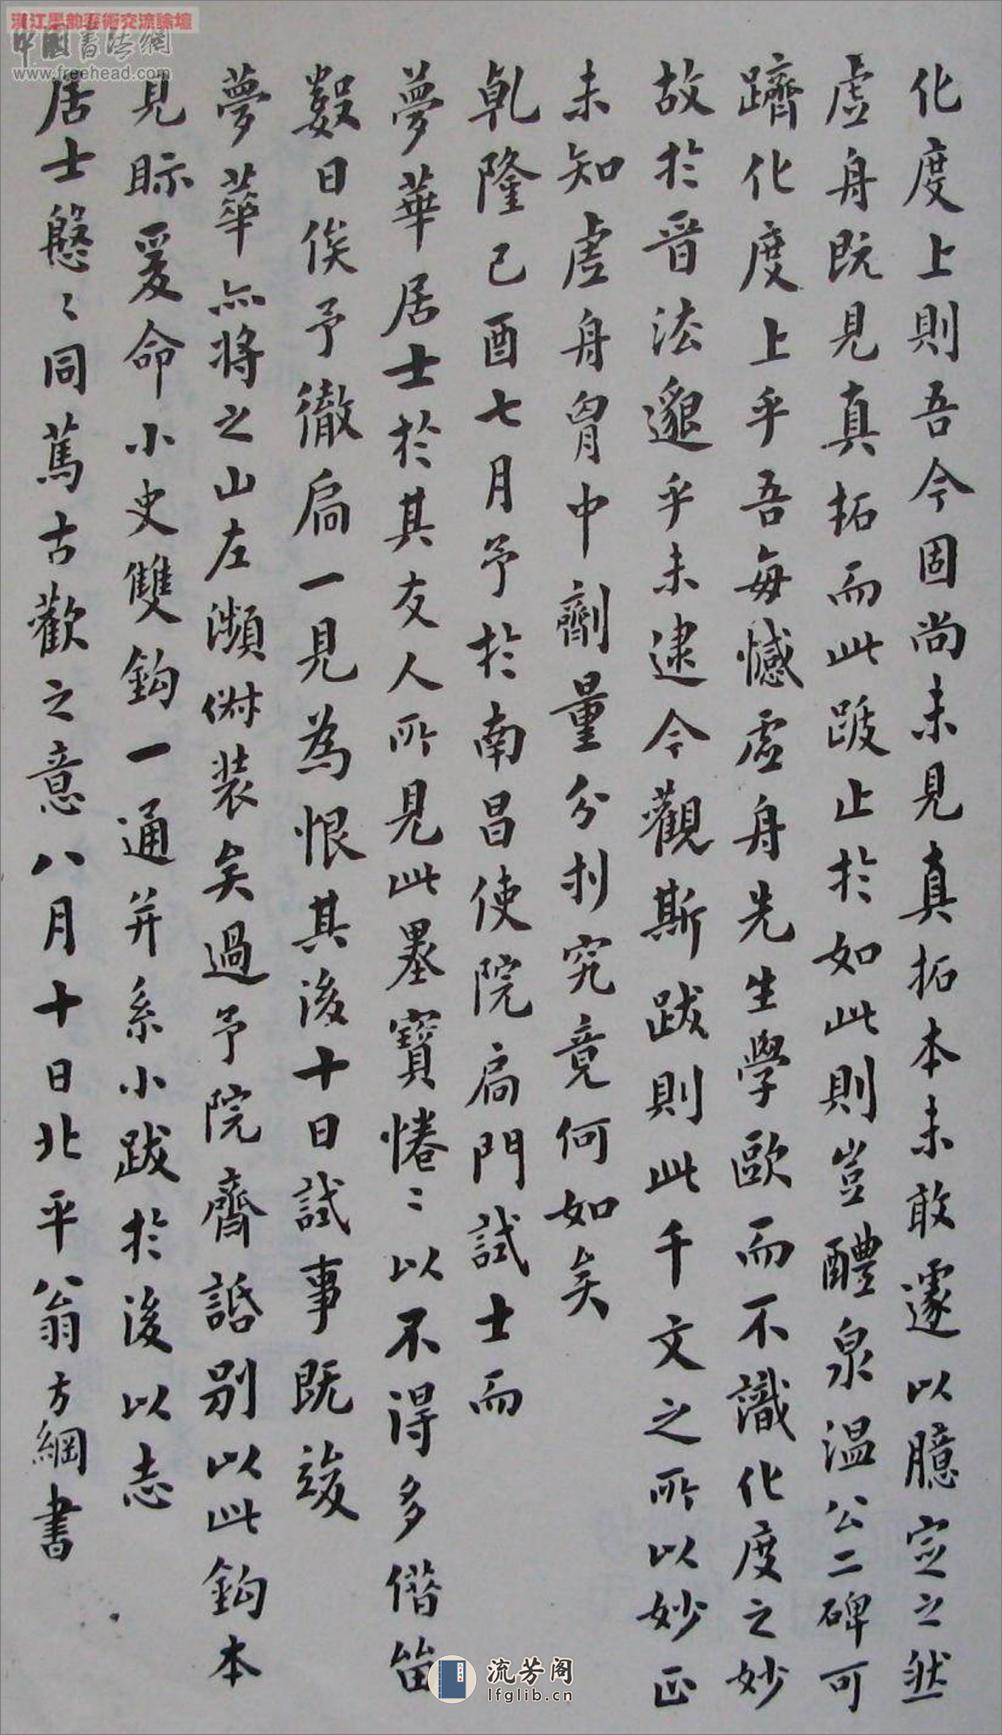 漢江墨韵藝術交流論壇
中國書法網
www.freehead.com
化度上則吾今固尚未見真拓本未敢遽以臆定之然
虛舟既見真拓而此跋止於如此則豈醴泉溫公二碑可
躋化度上乎吾每憾虛舟先生學歐而不識化度之妙
故於晋法邈乎未逮今觀斯跋則此千文之所以妙正
未知虛舟胷中劑量分刌究竟何如矣
乹隆己酉七月予於南昌使院扃門試士而
夢華居士於其友人所見此墨寶惓〻以不得多偕留
數日俟予徹扃一見為恨其後十日試事既竣
夢華亦將之山左瀕俶装矣過予院齋話別以此鈎本
見眎爰命小史雙鈎一通并系小跋於後以志
居士慇〻同篤古歡之意八月十日北平翁方綱書
流芳阁
lfglib.cn